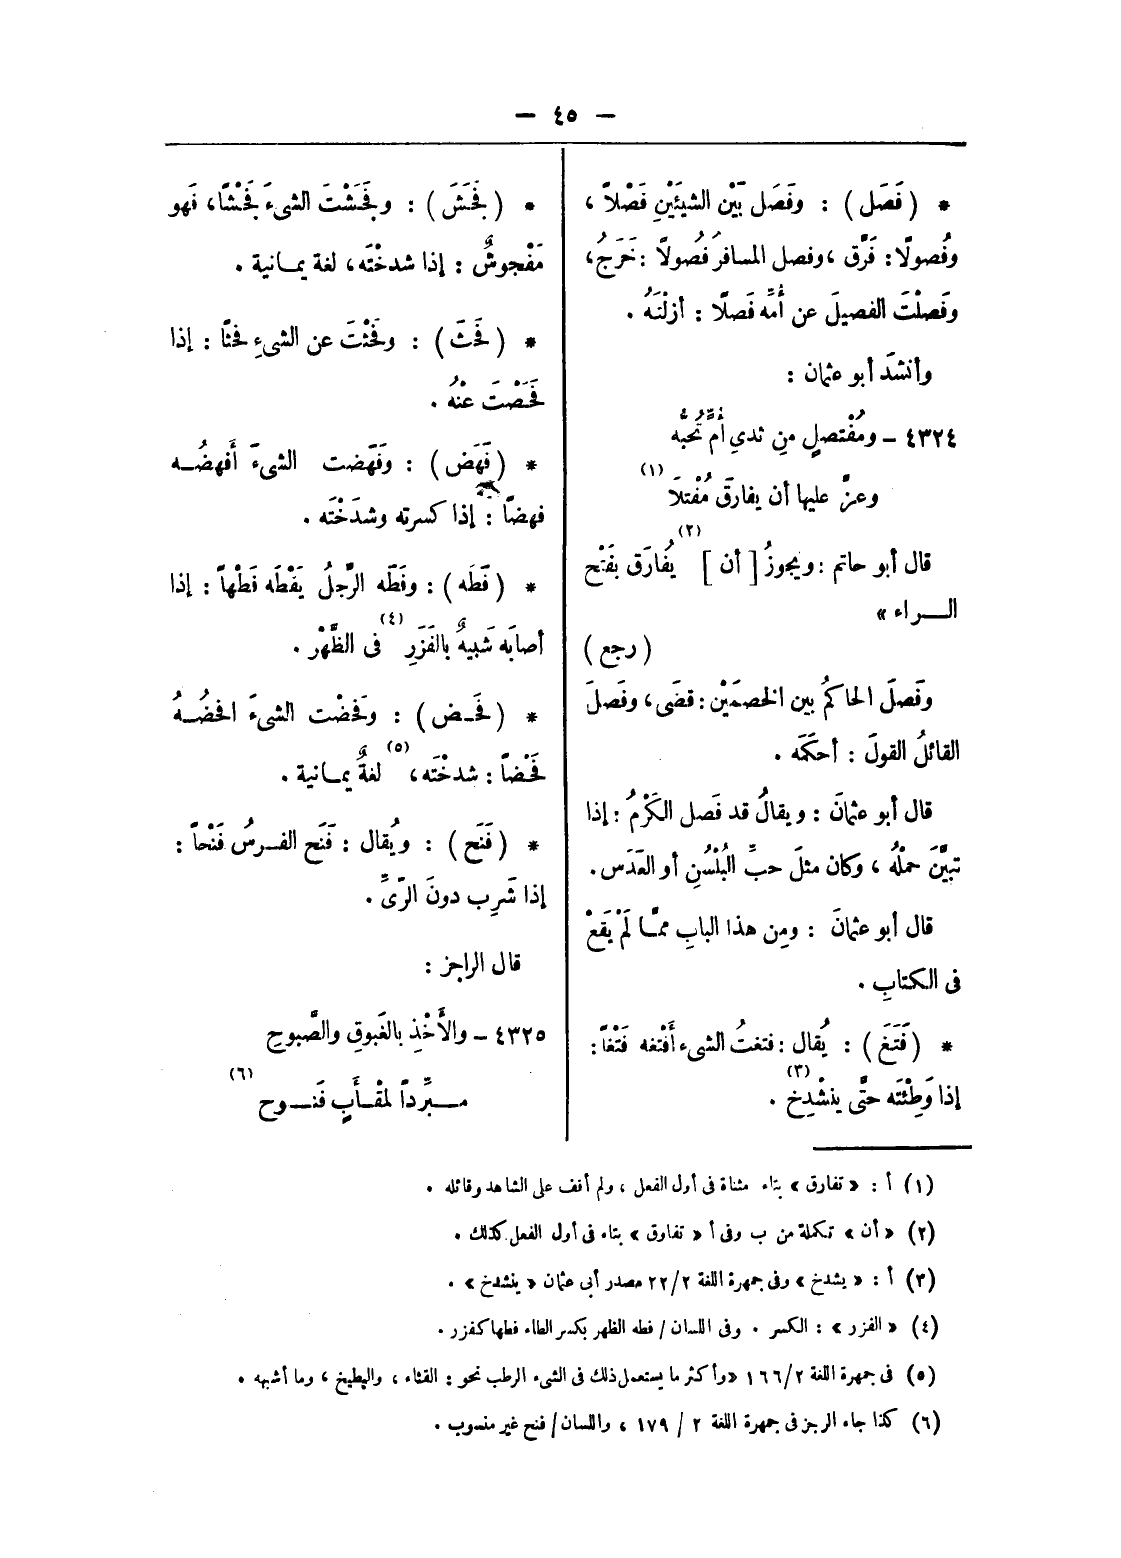 — ٤٥ —
* ( فَصَل ) : وفَصَل بَيْن الشيئَيْنِ فَصْلاً ،
وفُصولًا : فَرَّق ، وفصل المسافرُ فُصولًا : خَرَجُ ،
وفَصلْتَ الفصيلَ عن أُمِّه فَصلًا : أزلْتَهُ .
وأنشدَ أبو عثمان :
٤٣٢٤ – ومُفْتصلٍ مِن ثديِ أُمٍّ تُحبُّه
وعزَّ عليها أن يفارقَ مُفْتلَا (١)
قال أبو حاتم : ويجوزُ [ أن ] (٢) يُفارَق بفَتْح
الـــراء »
( رجع )
وفَصلَ الحاكمُ بين الخصمَيْن : قضَى ، وفَصلَ
القائلُ القولَ : أحكَمَه .
قال أبو عثمانَ : ويقالُ قد فَصل الكَرْمُ : إذا
تبيَّنَ حملُهُ ، وكان مثلَ حبِّ البُلْسُنِ أو العَدَس .
قال أبو عثمانَ : ومِن هذا البابِ ممَّا لَمْ يَقَعْ
فى الكتابِ .
* ( فَتَغَ ) : يُقال : فتغتُ الشىء أَفْتغه فَتْغًا :
إذا وَطِئتَه حتَّى ينشْدِخ (٣) .
* ( فَجَشَ ) : وفَجَشْتَ الشىءَ فَجْشًا ، فَهو
مَفْجوشٌ : إذا شدخْتَه ، لغة يمـانية .
* ( فَحَثَ ) : وفَحَثْتَ عن الشىءِ فحثًا : إذا
فَحَصْتَ عنْهُ .
* ( فَهَض ) : وفَهَضت الشىءَ أَفهضُــه
فهضًا : إذا كسرته وشدَخْتَه .
* ( فَطَه ) : وفَطَه الرَّجلُ يَفْطَه فَطْهاً : إذا
أصابَه شَبيهٌ بالفَزَرِ (٤) فى الظَّهْر .
* ( فَحَـض ) : وفَحَضْت الشىءَ افحَضُــهُ
فَحْضاً : شدخْتَه ، (٥) لغةٌ يمـانية .
* ( فَنَح ) : ويُقال : فَنَح الفـرسُ فَنْحاً :
إذا شَرِب دونَ الرّىِّ .
قال الراجز :
٤٣٢٥ – والأَخْذِ بالغَبوقِ والصَّبوحِ
مبـرِّداً لمقْـأَبٍ فَنـوح (٦)
(١) أ : « تفارق » بتاء مثناة فى أول الفعل ، ولم أقف على الشاهد وقائله .
(٢) « أن » تكملة من ب وفى أ « تفاوق » بتاء فى أول الفعل كذلك .
(٣) أ : « يشدخ » وفى جمهرة اللغة ٢/ ٢٢ مصدر أبى عثمان « ينشدخ » .
(٤) « الفزر » : الكسر . وفى اللسان / فطه الظهر بكسر الطاء فطها كفزر .
(٥) فى جمهرة اللغة ٢/ ١٦٦ «وأكثر ما يستعمل ذلك فى الشىء الرطب نحو : القثاء ، والبطيخ ، وما أشبهه .
(٦) كذا جاء الرجز فى جمهرة اللغة ٢ / ١٧٩ ، واللسان / فنح غير منسوب .